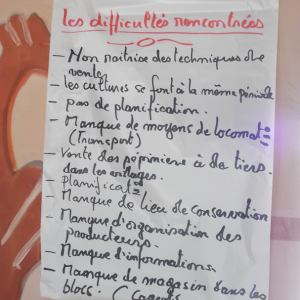 les difficultés rencontrées
- Non maitrise des techniques de
vente
- les cultures se font à la même période
- pas de planification.
- Manque de moyens de locomot°
(Transport)
- Vente des pépinière à de tiers.
dans les
- Planificat°
- Manque de lieu de conservation
- Manque d'organisation des
producteurs.
- Manque d'informations
- Manque de magasin dans les
blocs. (